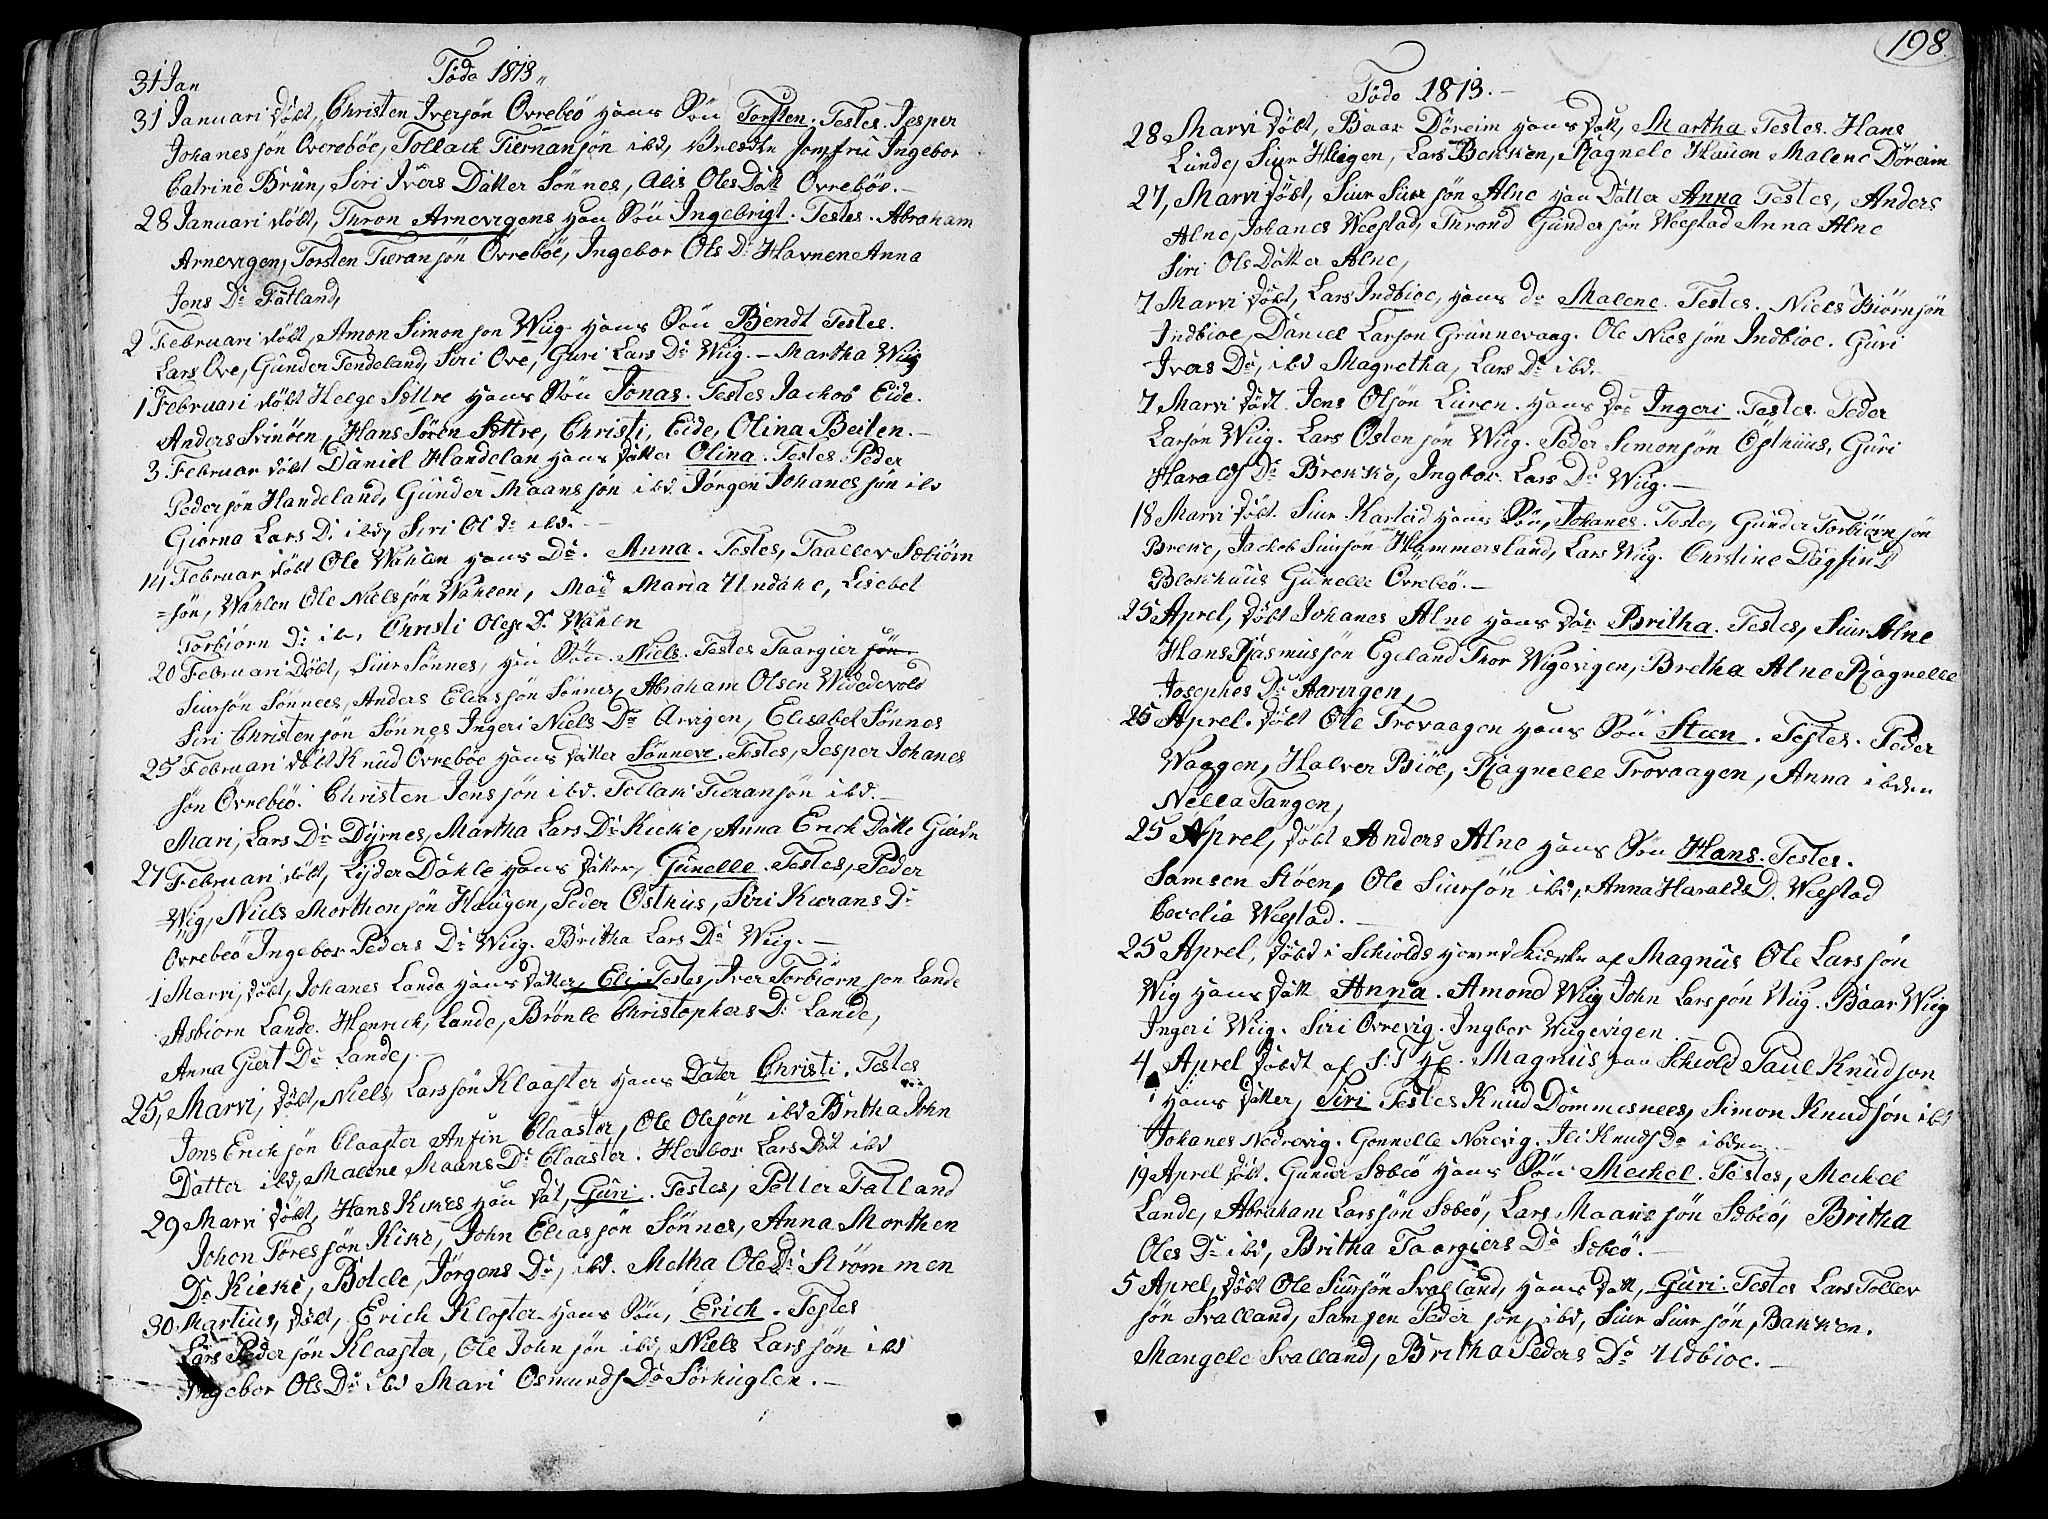 Föde 1813
31 Jan
31 Januari döbt, Christen Iversön Ovrebö hans Sön Torsten. Testes. Jesper
Johanes sön Overeböe, Tollack Tiernansön ibd, Jomfru Ingebor
Catrine Brun, Siri Ivers Datter Sönnes, Alis Oles Datt Ovreböe.
28 Januari döbt, Thron Arnevigens han Sön Ingebrigt. Testes. Abraham
Arnevigen, Torsten Tieransön Ovreböe, Ingebor Ols Dr Havnen Anna
Jens Dr Fatland,
2 Februari döbt, Amon Simonson Wiig hans Sön Bendt Testes.
Lars Ove, Gunder Tendeland, Siri Ove, Guri Lars Dr Wiig. – Martha Wiig
1 Februari döbt Helge Sættre hans Sön Jonas. Testes Jachob Eide.
Anders Svinöen, Hans Sören Sættre, Christi, Eide, Olina Beiten. –
3. Februar döbt Daniel Handelan hans datter Olina. Testes Peder
Pedersön Handeland, Gunder Maans sön ibd Jörgen Johanes sön ibd
Giorna Lars D. ibd, Siri Ol dr ibd. –
14 Februar döbt Ole Wahlen hans Dr. Anna. Testes, Taallev Sæbiörn
=sön, Wahlen Ole Nielssön Wahlen, Mad Maria Undahe, Lisebet
Torbiörn Dr ib, Christi Olese Dr Wahlen
20 Februari Döbt, Siur Sönnes, han Sön. Niels. Testes Taargier sön
Siursön Sönnees, Anders Eliassön Sönnes, Abraham Olsen Widdevold
Siri Christensön Sönnes Ingeri Niels Dr Arvigen, Elisabet Sönnes
25 Februari döbt Knud Ovreböe hans datter Sönneve. Testes, Jesper Johanes
sön Ovreböe. Christen Jenssön ibd. Tollak Tieransön ibd. –
Mari, Lars Dr Dyrnes, Martha Lars Dr Kieke, Anna Erich Datte
27 Februari döbt, Lyder Dahle hans datter, Gunelle. Testes, Peder
Wig, Niels Morthensön Haugen, Peder Osthus, Siri Kierans Dr
Ovreböe Ingebor Peders Dr Wiig. Britha Lars Dr Wiig. –
1 Marvi, döbt, Johanes Lande hans datter, Eli. Testes, Iver Torbiörnson Lande
Asbiorn Lande. Henrich, Lande, Brönle Christophers Dr Lande,
Anna Giert Dr Lande,
25, Marvi, döbt, Niels, Larssön Klaaster hans Dater Christi. Testes
Jens Ericksön Claaster Anfin Claaster, Ole Olesön ibd Britha John
Datter ibd, Malene Maans Dr Claaster. Herbor Lars Dtt ibd
29 Marvi döbt, Hans Kikes han dat, Guri. Testes, Petter Tatland
Johon Töressön Kike, John Eliassön Sönnes, Anna Morthen
Dr Kieke, Botele, Jörgens Dr, ibd. Metha Ole Dr Strömmen
30 Martius, döbt, Erich Kloster hans Sön, Erich. Testes
Lars Pedersön Klaaster, Ole Johnsön ibd, Niels Larssön ibd
Ingebor Ols Dr ibd Mari Osmunds Dr Sörhuglen. –
198
Födo 1813. –
28 Marvi döbt, Baar Döreim hans datt, Martha Testes. Hans
Lunde, Siur Heigen, Lars Bekken, Ragnele Hauen Malene Döreim
27, Marvi döbt, Siur Siur sön Alne han Datter Anna Testes, Anders
Alne, Johanes Weestad, Thrond Gundersön Weestad Anna Alne
Siri Ols Datter Alne,
7 Marvi döbt, Lars Indbioe, hans dr Malene. Testes. Niels Biörnsön
Indbioe, Daniel Larson Grunnevaag. Ole Nielssön Indbioe. Guri
Ivers Dr, ibd Magretha, Lars Dr ibd.
7 Marvi födt Jens Olsön Luren. hans dr Ingeri. Testes. Peder
Larsön Wiig. Lars Ostensön Wiig. Peder Simonsön Östhuus, Guri
Harald Dr Brekke, Ingbor Lars Dr Wiig. –
18 Marvi döbt Siur Karteid hans Sön, Johanes. Teste, Gunder Torbiörnsön
Breke, Jachob Siursön Hammersland, Lars Wiig. Christine Dagfin D
Bloschuus Gunelle Ovrebö. –
25 Aprel, döbt Johanes Alne hans dr Britha. Testes, Siur Alne
Hans Rasmussön Egeland Thor Wigevigen, Bretha Alne Ragnelle
Josephes Dr Aarvigen,
25 Aprel. döbt Ole Trovaagen hans Sön Steen. Testes. Peder
Waagen, Halver Biöe, Ragnelle Trovaagen, Anna ibden
Nella Tangen,
25 Aprel, döbt Anders Alne hans Sön Hans. Testes.
Samsen Stöen, Ole Siursön ibd, Anna Haralds D. Weestad
Cecelia Weestad. –
25 Aprel, döbt i Schiolds hoved kierke af Magnus Ole Larssön
Wig hans datt Anna. Amond Wiig John Larssön Wiig. Baar Wiig
Ingeri Wiig. Siri Ovrevig. Ingbor Wiigevigen
4 Aprel döbdt af S:T Hr. Magnus paa Schiold Paul Knudson
i hans datter, Siri Testes Knud Dommesnees, Simon Knudsön ibd
Johanes Nedrevig. Gonnelle Norevig. Ili Knuds Dr ibden
19 Aprel döbt. Gunder Sæbeö hans Sön Meckel. Testes, Mechel
Lande, Abraham Larssön Sæbeö, Lars Maanssön Sæbeö, Britha
Oles Dr ibd, Britha Taargiers Dr Sæbeö. –
5 Aprel, döbt Ole Siursön Svalland, hans datt, Guri. Testes Lars Tollev
sön Svalland, Samsen Peder sön, ibd, Siur Siur sön, Bakken.
Mangele Svalland, Britha Peders Dr Udbioe. –